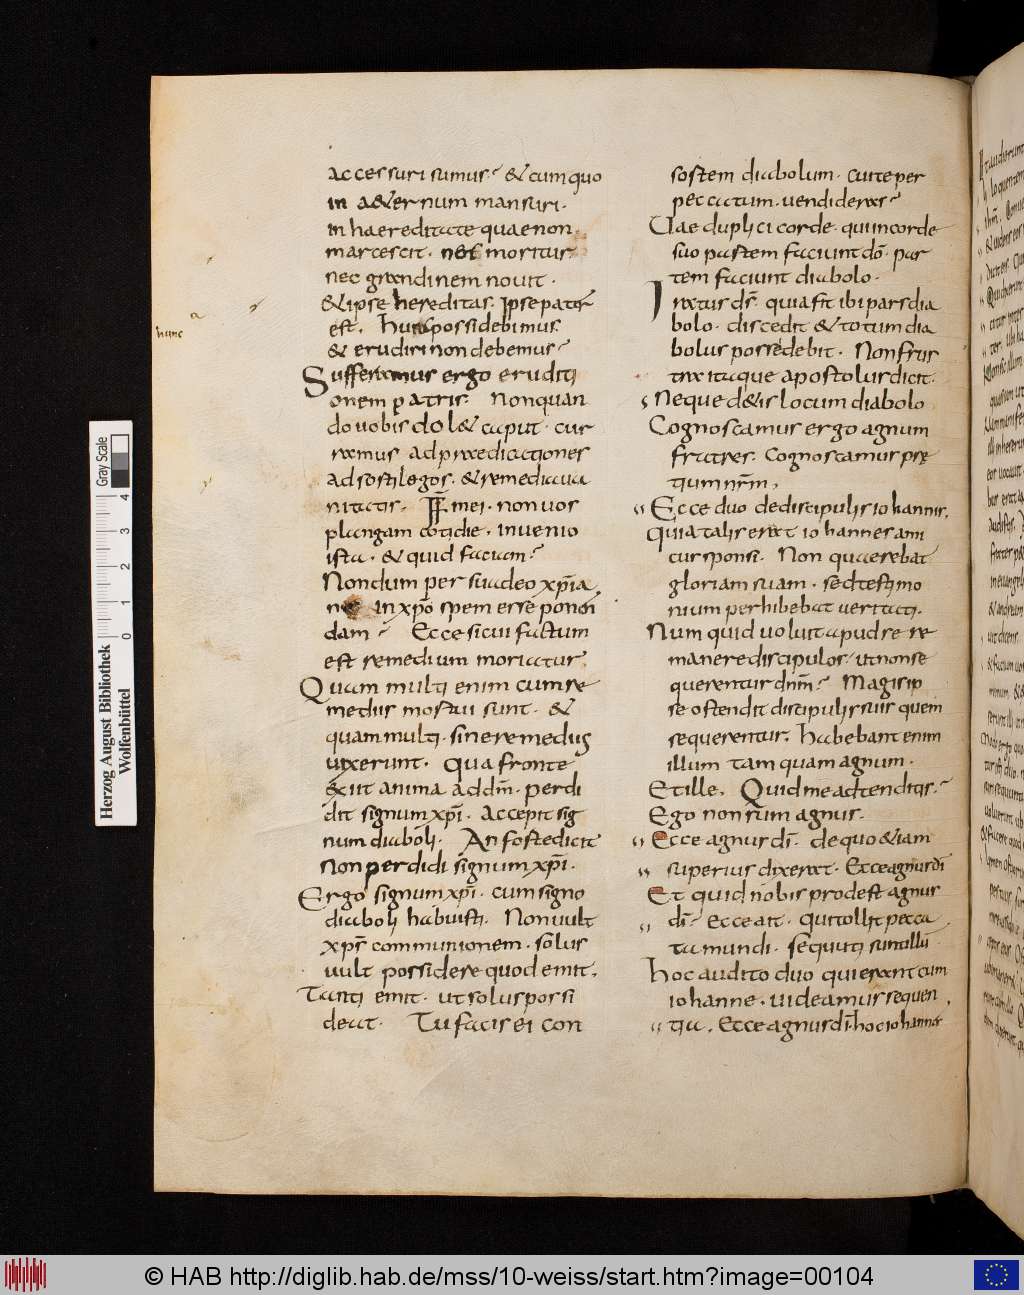 accessuri sumus? & cum quo
in a&ernum mansuri.
in haereditate quae non
marcescit. nec moritur
nec grandinem novit.
& ipse hereditas. Ipse pater
est. possidebimus.
& erudiri non debemus?
Sufferamus ergo eruditi
onem patris. Non quan
do vobis dol& caput. cur
ramus ad praedicationes
ad sortilegos. & remedia va
nitatis. FF mei. non vos
plangam cotidie. invenio
ista. & quid faciam?
Nondum persuadeo xpīa
nis in xpō spem esse ponen
dam? Ecce si cui factum
est remedium moriatur.
Quam multi enim cum re
mediis mortui sunt. &
quam multi. sine remediis
vixerunt. Qua fronte
exiit anima ad dm̄. perdi
dit signum xpī. accepit sig
num diaboli. An forte dicit
non perdidi signum xpī.
Ergo signum xpī. cum signo
diaboli habuisti. Non vult
xps̄ communionem. solus
vult possidere quod emit.
Tanti emit. ut solus possi
deat. Tu facis ei con
hunc
sortem diabolum. cui te per
peccatum. vendideras?
Vae duplici corde. qui in corde
suo partem faciunt dō. par
tem faciunt diabolo.
Iratus ds̄. quia fit ibi pars dia
bolo. discedit & totum dia
bolus possedebit. Non frus
tra itaque apostolus dicit.
Neque d&is locum diabolo
Cognoscamus ergo agnum
fratres. Cognoscamus prę
tium nr̄m.
Ecce duo de discipulis iohannis.
quia talis erat iohannes ami
cus sponsi. Non quaerebat
gloriam suam. sed testimo
nium perhibebat veritati.
Num quid voluit apud se re
manere discipulos. ut non se
querentur dn̄m? Magis ip
se ostendit discipulis suis quem
sequerentur. habebant enim
illum tam quam agnum.
Et ille. Quid me adtenditis?
Ego non sum agnus.
Ecce agnus dī. de quo &iam
superius dixerat. Ecce agnus dī
Et quid nobis prodest agnus
dī. Ecce ait. qui tollit pecca
ta mundi. secuti sunt illū
hoc audito duo qui erant cum
iohanne. videamus sequen
tia. Ecce agnus dī. hoc iohannes
Herzog August Bibliothek
Wolfenbüttel
0 1 2 3 4
Gray Scale
© HAB http://diglib.hab.de/mss/10-weiss/start.htm?image=00104